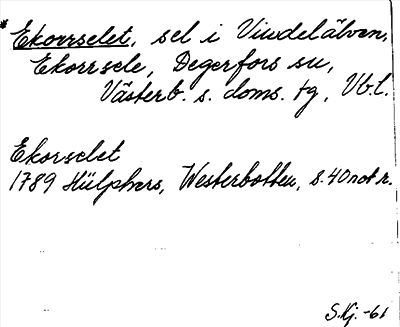 *Ekorrselet, sel i Vindelälven,
Ekorrsele, Degerfors sn,
Västerb. s. doms. tg, Vb.l.
Ekorselet
1789 Hülphers, Westerbotten, s. 40 not r.
S.Kj. -61